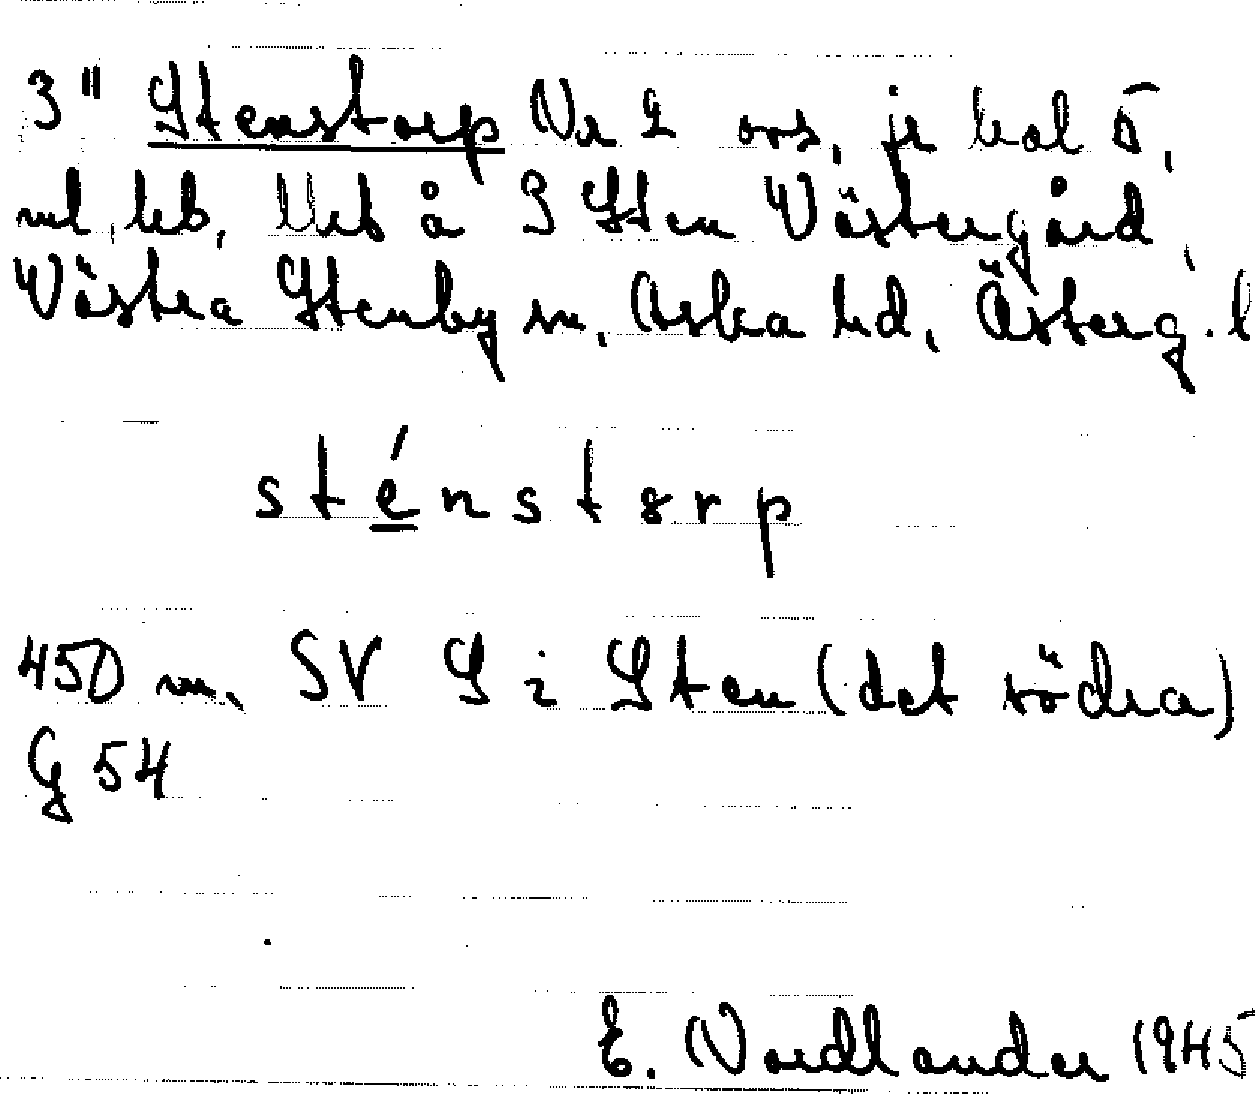 3" Stenstorp Nr 2 avs. jr kol 5,
ml, lb, Urb å 3 Sten Västergård,
Västra Stenby sn, Aska hd, Österg. l
sténstɘrp
450 m. SV S i Sten (det södra)
G 54
E. Nordlander 1945